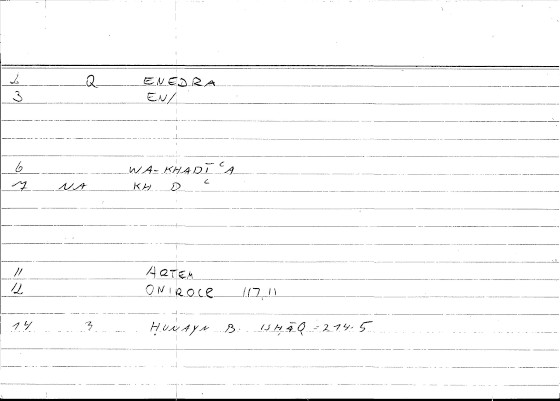 2 Q ENEDRA
3 EN/
6 WA-KHADĪʿA
7 NA KH D ʿ
11 ARTEM
12 ONIROCR 117,11
14 3 ḤUNAYN B. ISḤĀQ = 214.5